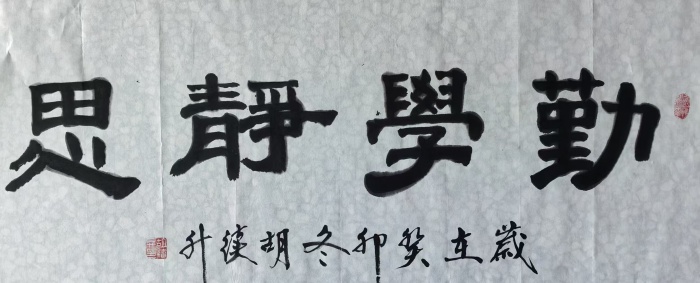 勤學靜思
歲在癸卯冬胡續升